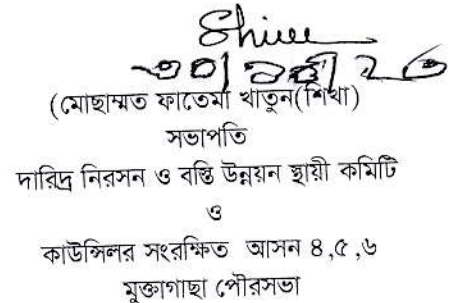 (মোছাম্মত ফাতেমা খাতুন(শিখা)
সভাপতি
দারিদ্র নিরসন ও বস্তি উন্নয়ন স্থায়ী কমিটি
ও
কাউন্সিলর সংরক্ষিত আসন ৪,৫,৬
মুক্তাগাছা পৌরসভা